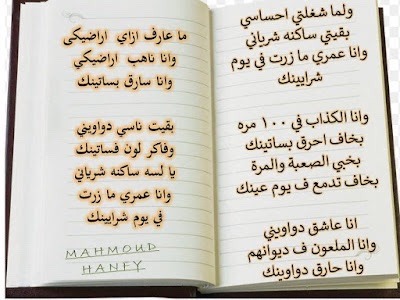 ولما شغلتي احساسي
بقيتي ساكنه شرياني
وانا عمري ما زرت في يوم
شرايينك
وانا الكذاب في ١٠٠ مره
بخاف احرق بساتينك
بخبي الصعبة والمرة
بخاف تدمع ف يوم عينك
انا عاشق دواويني
وانا الملعون ف ديوانهم
وانا حارق دواوينك
ما عارف ازاي اراضيكى
وانا ناهب اراضيكي
وانا سارق بساتينك
بقيت ناسي دواويني
وفاكر لون فساتينك
يا لسه ساكنه شرياني
وانا عمري ما زرت
في يوم شرايينك
MAHMOUD
HANFY